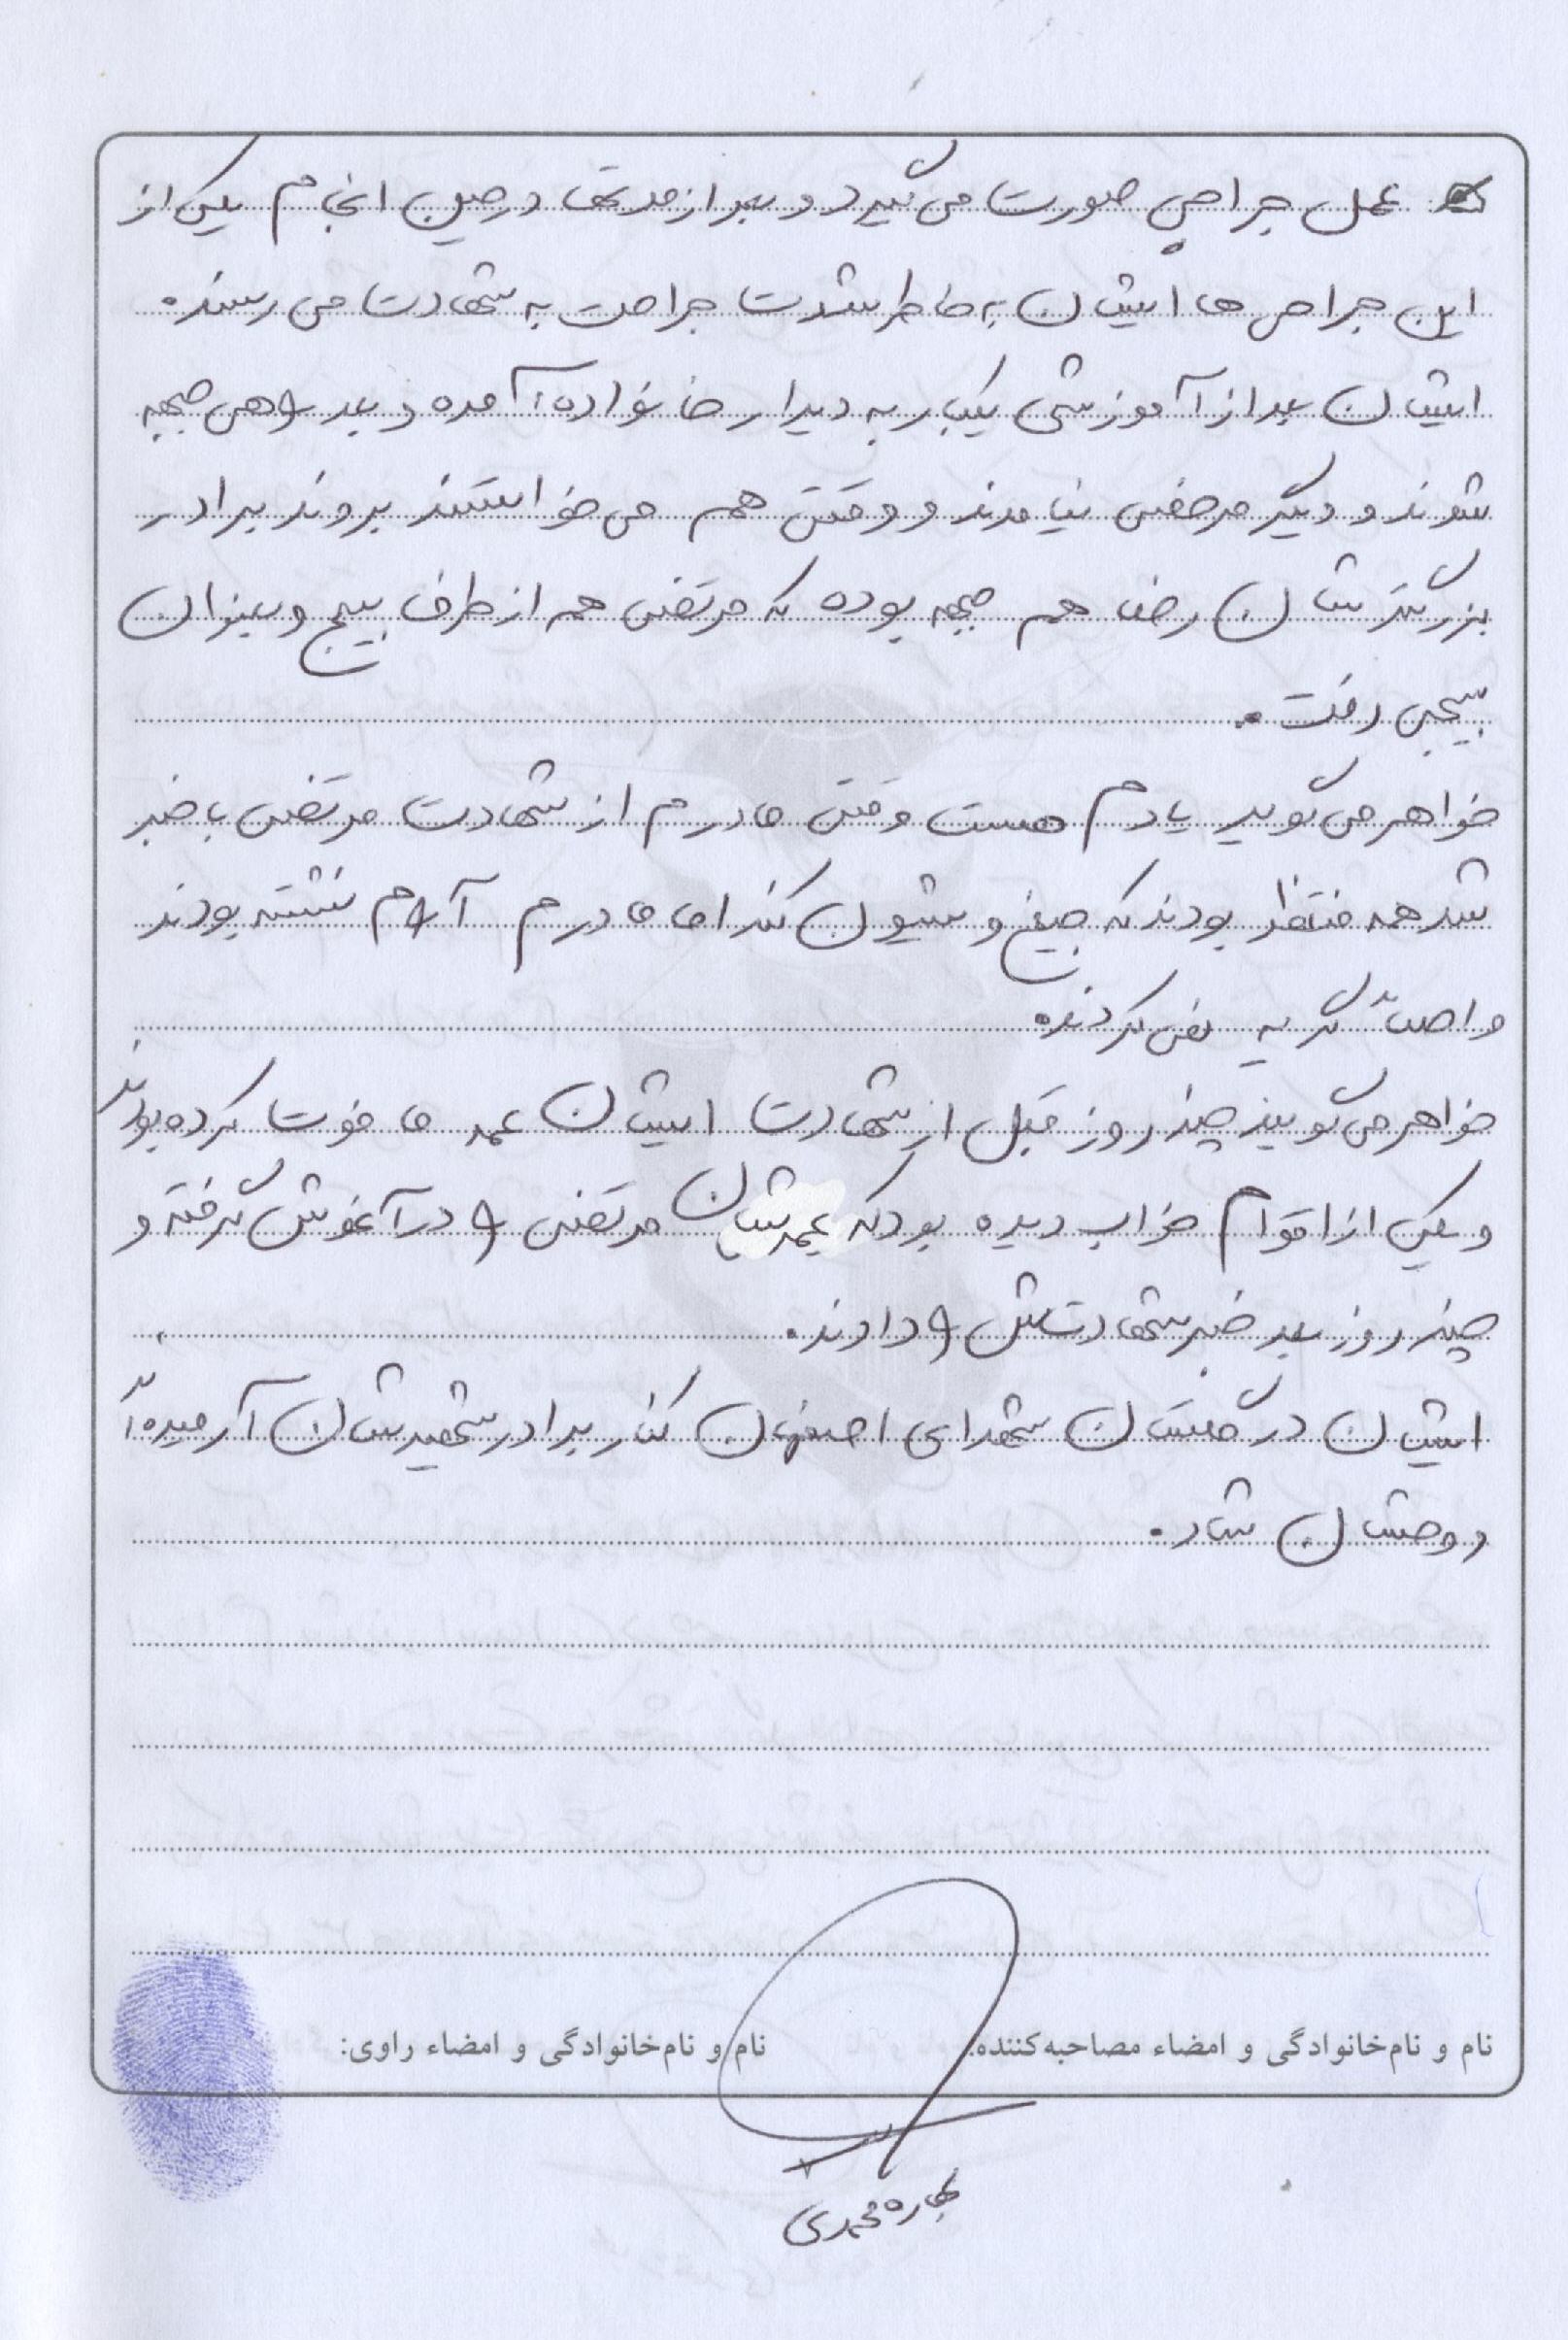 عمل جراحی صورت می گیرد و بعد از مدتها در حین انجام یکی از
این جراحی ها ایشان به خاطر شدت جراحت به شهادت می رسند.
ایشان بعد از آموزشی یکبار به دیدار خانواده آمده و بعد راهی جبهه
شوند و دیگر مرخصی نیامدند و وقتی هم می خواستند بروند برادر
بزرگترشان رضا هم جبهه بوده که مرتضی هم از طرف بسیج و بعنوان
بسیجی رفت.
خواهر می گوید یادم هست وقتی مادرم از شهادت مرتضی باخبر
شد همه منتظر بودند که جیغ و شیون کند اما مادرم آرام نشسته بودند
و اصلاً گریه نمی کردند.
خواهر می گویند چند روز قبل از شهادت ایشان عمه ما فوت کرده بودند
و یکی از اقوام خواب دیده بود که عمه شان مرتضی را در آغوش گرفته و
چند روز بعد خبر شهادتش را دادند.
ایشان در گلستان شهدای اصفهان کنار برادر شهیدشان آرمیده اند
روحشان شاد.
نام و نام‌خانوادگی و امضاء مصاحبه‌کننده: نام و نام‌خانوادگی و امضاء راوی:
بهاره محمدی